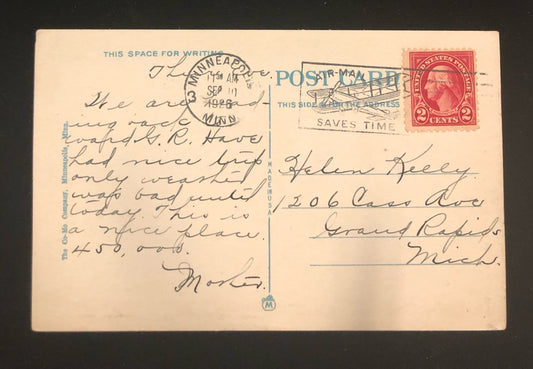 THIS SPACE FOR WRITING
POST CARD
THIS SIDE IS FOR THE ADDRESS
MINNEAPOLIS
3
11 AM
SEP 10
1926
MINN
AIR MAIL
SAVES TIME
UNITED STATES POSTAGE
2 CENTS 2
We are
ing back
ward G.R. Have
had nice trip
only weather
was bad until
today. This is
a nice place.
450,000.
Mother.
Helen Kelly.
1206 Cass Ave
Grand Rapids
Mich.
The Co-Mo Company, Minneapolis, Minn.
MADE USA
M